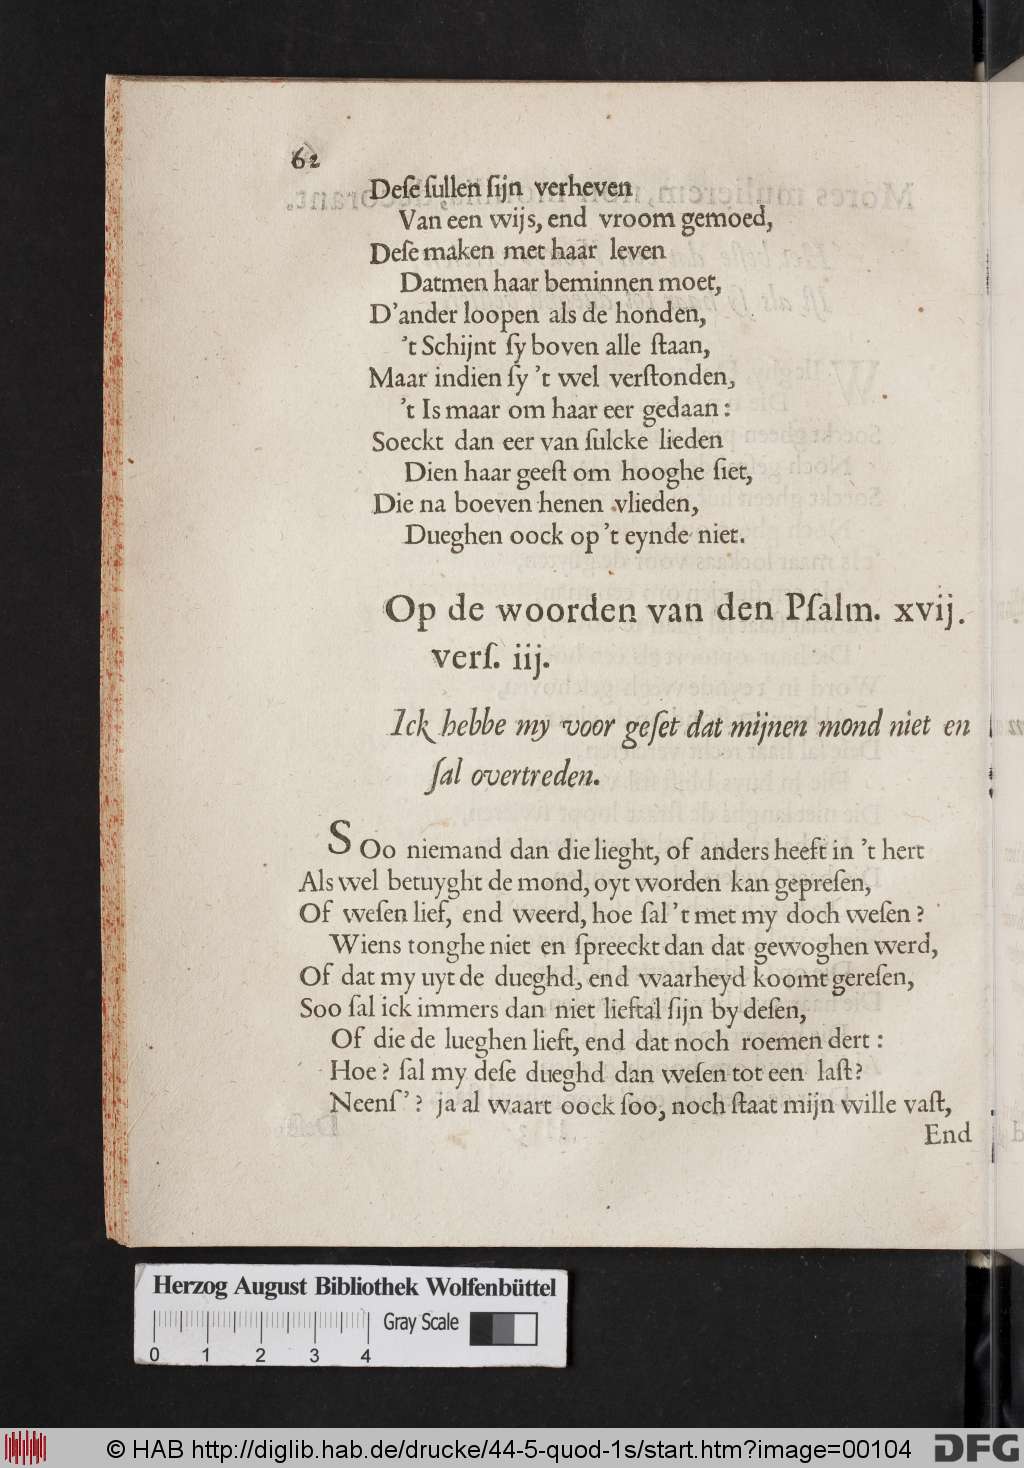 62
Deſe ſullen ſijn verheven
Van een wijs, end vroom gemoed,
Deſe maken met haar leven
Datmen haar beminnen moet,
D'ander loopen als de honden,
't Schijnt ſy boven alle ſtaan,
Maar indien ſy 't wel verſtonden,
't Is maar om haar eer gedaan:
Soeckt dan eer van ſulcke lieden
Dien haar geeſt om hooghe ſiet,
Die na boeven henen vlieden,
Dueghen oock op 't eynde niet.
Op de woorden van den Pſalm. xvij.
verſ. iij.
Ick hebbe my voor geſet dat mijnen mond niet en
ſal overtreden.
SOo niemand dan die lieght, of anders heeft in 't hert
Als wel betuyght de mond, oyt worden kan gepreſen,
Of weſen lief, end weerd, hoe ſal 't met my doch weſen?
Wiens tonghe niet en ſpreeckt dan dat gewoghen werd,
Of dat my uyt de dueghd, end waarheyd koomt gereſen,
Soo ſal ick immers dan niet lieftal ſijn by deſen,
Of die de lueghen lieft, end dat noch roemen dert:
Hoe? ſal my deſe dueghd dan weſen tot een laſt?
Neenſ'? ja al waart oock ſoo, noch ſtaat mijn wille vaſt,
End
Herzog August Bibliothek Wolfenbüttel
Gray Scale
0 1 2 3 4
© HAB http://diglib.hab.de/drucke/44-5-quod-1s/start.htm?image=00104
DFG